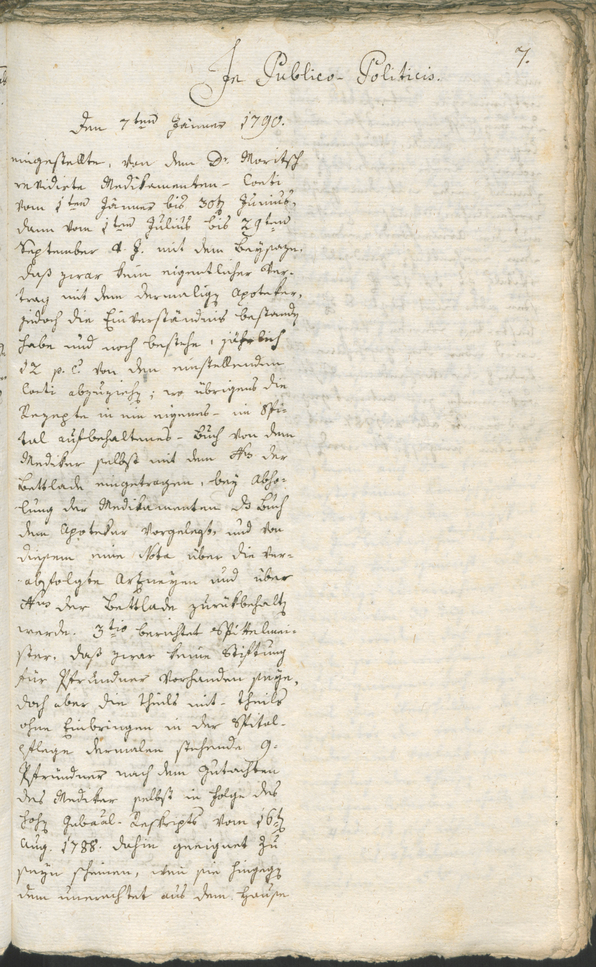 7.
In Publico-Politicis.
Den 7ten Jänner 1790.
eingestellte, von dem D. Moritsch
revidirte Medikamenten-Conti
vom 1ten Jänner bis 30ten Junius,
dann vom 1ten Julius bis 29ten
September d. J. mit dem Beysaze.
daß zwar kein eigentlicher Ver-
trag mit dem dermalig Apoteker,
jedoch die Einverständnis bestand
habe und noch bestehe, jährlich
12 p. C. von den einstellenden
Conti abzuziehen; wo übrigens die
Rezepte in ein eigenes - im Spi-
tal aufbehaltenes - Buch von dem
Mediker selbst mit dem Nro der
Bettlade eingetragen, bey Abho-
lung der Medikamenten das Buch
dem Apoteker vorgelegt, und von
diesem eine Nota über die ver-
abfolgte Arzneyen und über
Nro der Bettlade zurükbehalten
werde. 3tio berichtet Spittelmei-
ster, daß zwar keine Stiftung
für Pfründner vorhanden seye,
doch aber die theils mit- theils
ohne Einbringen in der Spital-
pflege dermalen stehende 9.
Pfründner nach dem Gutachten
des Mediker selbst in Folge des
hohen Gubernial-Reskripts vom 16ten
Aug. 1788. dahin geeignet zu
seyn scheinen, wenn sie hingegen
dem unerachtet aus dem Hause